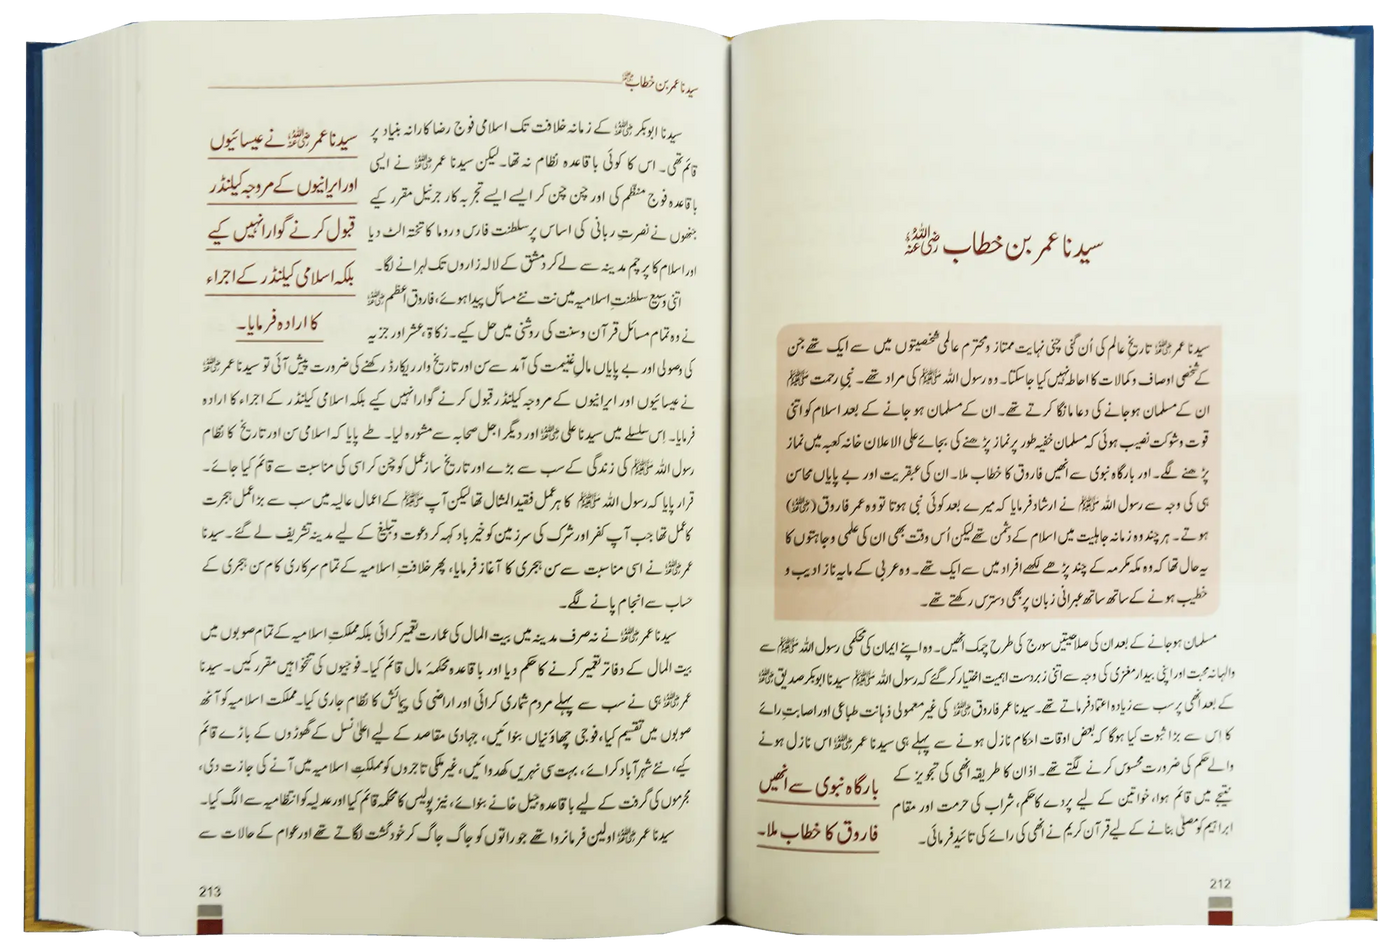 سیدنا عمر بن خطاب رضی اللہ عنہ
سیدنا عمر رضی اللہ عنہ تاریخِ عالم کی اُن گنی چنی نہایت ممتاز و محترم عالمی شخصیتوں میں سے ایک تھے جن
کے شخصی اوصاف و کمالات کا احاطہ نہیں کیا جا سکتا۔ وہ رسول اللہ ﷺ کی مراد تھے۔ نبیِ رحمت ﷺ
ان کے مسلمان ہو جانے کی دعا مانگا کرتے تھے۔ ان کے مسلمان ہو جانے کے بعد اسلام کو اتنی
قوت و شوکت نصیب ہوئی کہ مسلمان خفیہ طور پر نماز پڑھنے کی بجائے علی الاعلان خانہ کعبہ میں نماز
پڑھنے لگے۔ اور بارگاہ نبوی سے انھیں فاروق کا خطاب ملا۔ ان کی عبقریت اور بے پایاں محاسن
ہی کی وجہ سے رسول اللہ ﷺ نے ارشاد فرمایا کہ میرے بعد کوئی نبی ہوتا تو وہ عمر فاروق (رضی اللہ عنہ)
ہوتے۔ ہر چند وہ زمانہ جاہلیت میں اسلام کے دشمن تھے لیکن اُس وقت بھی ان کی علمی وجاہتوں کا
یہ حال تھا کہ وہ مکہ مکرمہ کے چند پڑھے لکھے افراد میں سے ایک تھے۔ وہ عربی کے مایہ ناز ادیب و
خطیب ہونے کے ساتھ ساتھ عبرانی زبان پر بھی دسترس رکھتے تھے۔
مسلمان ہو جانے کے بعد ان کی صلاحیتیں سورج کی طرح چمک اٹھیں۔ وہ اپنے ایمان کی محکمی رسول اللہ ﷺ سے
والہانہ محبت اور اپنی بیدار مغزی کی وجہ سے اتنی زبردست اہمیت اختیار کر گئے کہ رسول اللہ ﷺ سیدنا ابوبکر صدیق رضی اللہ عنہ
کے بعد انھی پر سب سے زیادہ اعتماد فرماتے تھے۔ سیدنا عمر فاروق رضی اللہ عنہ کی غیر معمولی ذہانت طباعی اور اصابتِ رائے
کا اِس سے بڑا ثبوت کیا ہوگا کہ بعض اوقات احکام نازل ہونے سے پہلے ہی سیدنا عمر رضی اللہ عنہ اس نازل ہونے
والے حکم کی ضرورت محسوس کرنے لگتے تھے۔ اذان کا طریقہ انھی کی تجویز کے
نتیجے میں قائم ہوا، خواتین کے لیے پردے کا حکم، شراب کی حرمت اور مقام
ابراہیم کو مصلّٰی بنانے کے لیے قرآن کریم نے انھی کی رائے کی تائید فرمائی۔
بارگاہ نبوی سے انھیں
فاروق کا خطاب ملا۔
212
سیدنا عمر بن خطاب رضی اللہ عنہ
سیدنا ابوبکر رضی اللہ عنہ کے زمانہ خلافت تک اسلامی فوج رضا کارانہ بنیاد پر
قائم تھی۔ اس کا کوئی با قاعدہ نظام نہ تھا۔ لیکن سیدنا عمر رضی اللہ عنہ نے ایسی
باقاعدہ فوج منظم کی اور چن چن کر ایسے ایسے تجربہ کار جرنیل مقرر کیے
جنھوں نے نصرتِ ربانی کی اساس پر سلطنت فارس و روما کا تختہ الٹ دیا
اور اسلام کا پرچم مدینہ سے لے کر دمشق کے لالہ زاروں تک لہرانے لگا۔
اتنی وسیع سلطنتِ اسلامیہ میں نت نئے مسائل پیدا ہوئے، فاروق اعظم رضی اللہ عنہ
نے وہ تمام مسائل قرآن و سنت کی روشنی میں حل کیے۔ زکاۃ، عشر اور جزیہ
سیدنا عمر رضی اللہ عنہ نے عیسائیوں
اور ایرانیوں کے مروجہ کیلنڈر
قبول کرنے گوارا نہیں کیے
بلکہ اسلامی کیلنڈر کے اجراء
کا ارادہ فرمایا۔
کی وصولی اور بے پایاں مالِ غنیمت کی آمد سے سن اور تاریخ وار ریکارڈ رکھنے کی ضرورت پیش آئی تو سیدنا عمر رضی اللہ عنہ
نے عیسائیوں اور ایرانیوں کے مروجہ کیلنڈر قبول کرنے گوارا نہیں کیے بلکہ اسلامی کیلنڈر کے اجراء کا ارادہ
فرمایا۔ اِس سلسلے میں سیدنا علی رضی اللہ عنہ اور دیگر اجل صحابہ سے مشورہ لیا۔ طے پایا کہ اسلامی سن اور تاریخ کا نظام
رسول اللہ ﷺ کی زندگی کے سب سے بڑے اور تاریخ ساز عمل کو چن کر اسی کی مناسبت سے قائم کیا جائے۔
قرار پایا کہ رسول اللہ ﷺ کا ہر عمل فقید المثال تھا لیکن آپ ﷺ کے اعمال عالیہ میں سب سے بڑا عمل ہجرت
کا عمل تھا جب آپ کفر اور شرک کی سرزمین کو خیر باد کہہ کر دعوت و تبلیغ کے لیے مدینہ تشریف لے گئے۔ سیدنا
عمر رضی اللہ عنہ نے اسی مناسبت سے سن ہجری کا آغاز فرمایا، پھر خلافتِ اسلامیہ کے تمام سرکاری کام سن ہجری کے
حساب سے انجام پانے لگے۔
سیدنا عمر رضی اللہ عنہ نے نہ صرف مدینہ میں بیت المال کی عمارت تعمیر کرائی بلکہ مملکتِ اسلامیہ کے تمام صوبوں میں
بیت المال کے دفاتر تعمیر کرنے کا حکم دیا اور باقاعدہ محکمۂ مال قائم کیا۔ فوجیوں کی تنخواہیں مقرر کیں۔ سیدنا
عمر رضی اللہ عنہ ہی نے سب سے پہلے مردم شماری کرائی اور اراضی کی پیمائش کا نظام جاری کیا۔ مملکت اسلامیہ کو آٹھ
صوبوں میں تقسیم کیا، فوجی چھاؤنیاں بنوائیں، جہادی مقاصد کے لیے اعلیٰ نسل کے گھوڑوں کے باڑے قائم
کیے، نئے شہر آباد کرائے، بہت سی نہریں کھدوائیں، غیر ملکی تاجروں کو مملکتِ اسلامیہ میں آنے کی جازت دی،
مجرموں کی گرفت کے لیے باقاعدہ جیل خانے بنوائے، نیز پولیس کا محکمہ قائم کیا اور عدلیہ کو انتظامیہ سے الگ کیا۔
سیدنا عمر رضی اللہ عنہ اولین فرمانروا تھے جو راتوں کو جاگ جاگ کر خود گشت لگاتے تھے اور عوام کے حالات سے
213